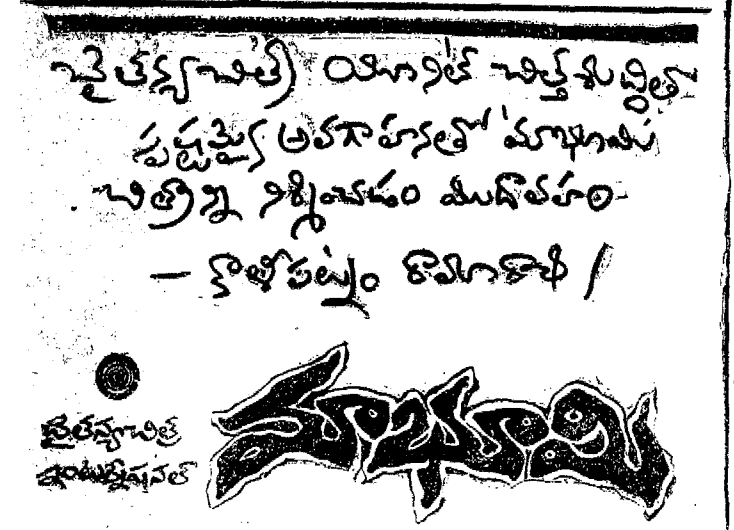 చైతన్యచిత్ర యూనిట్ చిత్తశుద్ధితో
స్పష్టమైన అవగాహనతో 'మాభూమి'
చిత్రాన్ని నిర్మించడం ముదావహం
– కాళీపట్నం రామారావు /
చైతన్యచిత్ర
ఇంటర్నేషనల్
మాభూమి